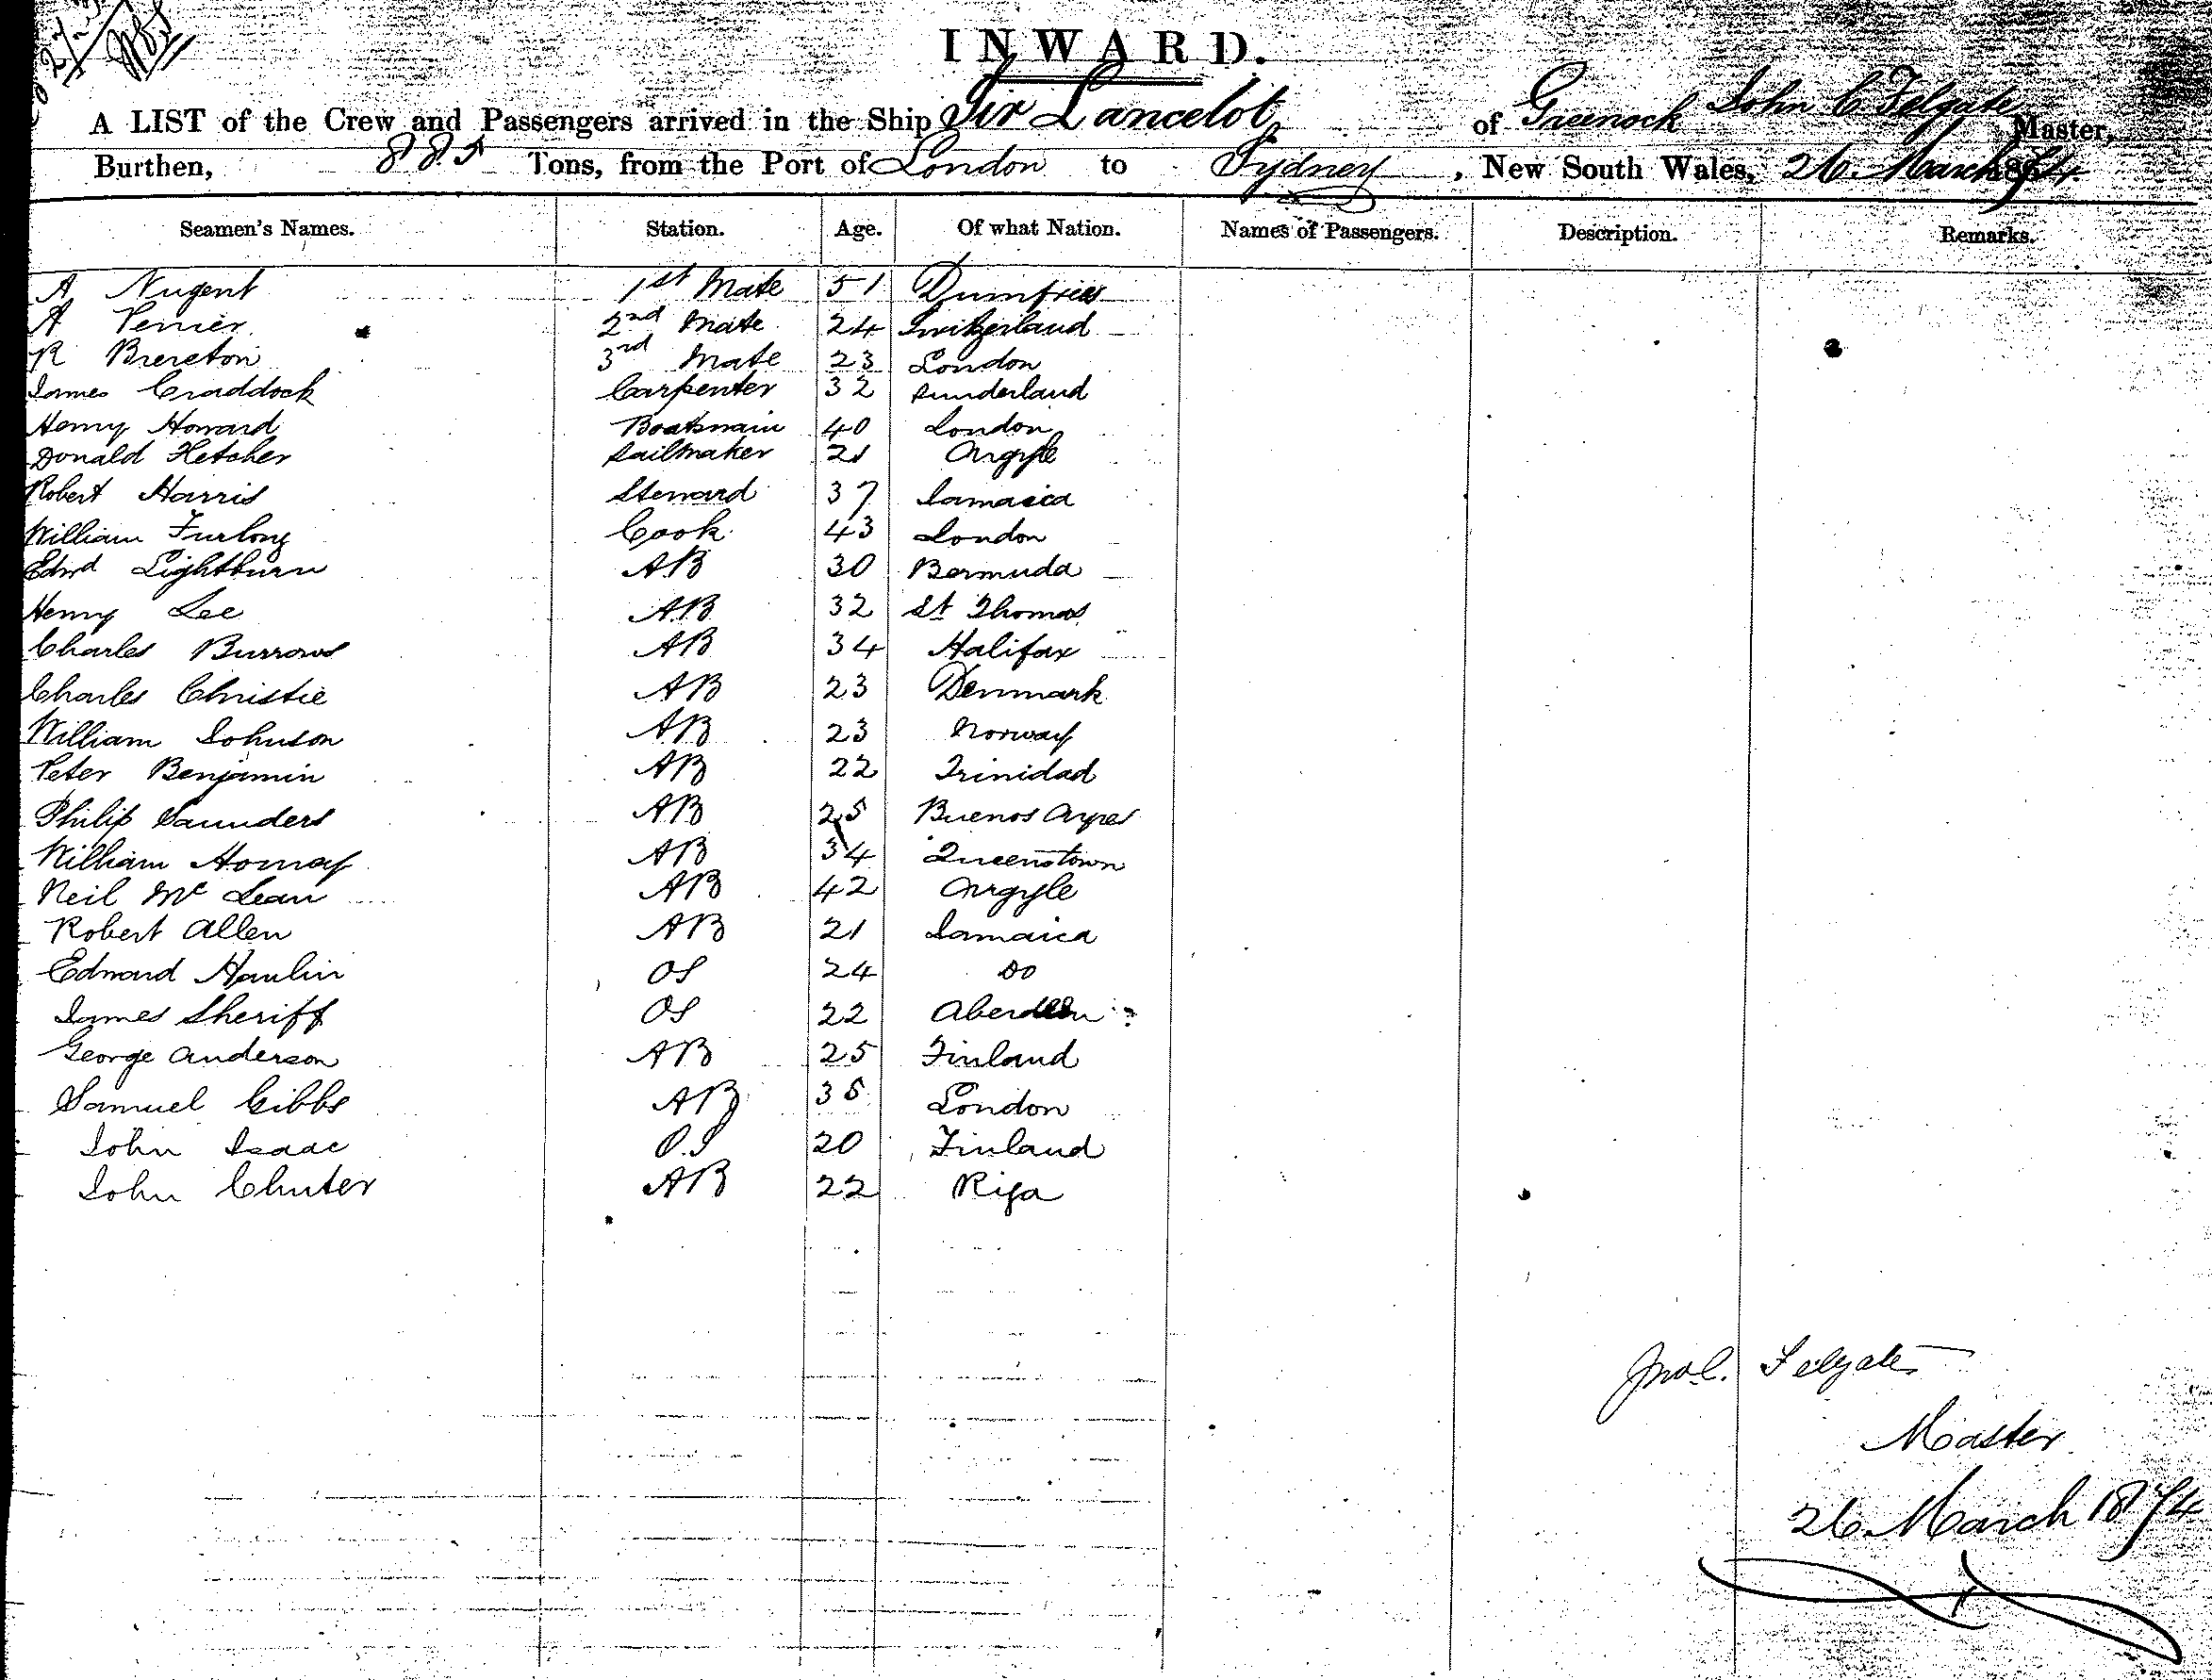 INWARD.
A LIST of the Crew and Passengers arrived in the Ship Sir Lancelot of Greenock John C Felgate Master,
Burthen, 885 Tons, from the Port of London to Sydney, New South Wales, 26 March 1874.
Seamen's Names. Station. Age. Of what Nation. Names of Passengers. Description. Remarks.
A Nugent 1st Mate 51 Dumfries
A Perrier 2nd Mate 24 Switzerland
R Brereton 3rd Mate 23 London
James Craddock Carpenter 32 Sunderland
Henry Howard Boatswain 40 London
Donald Fletcher Sailmaker 21 Argyle
Robert Harris Steward 37 Jamaica
William Furlong Cook 43 London
Edwd Lightburn AB 30 Bermuda
Henry Lee AB 32 St Thomas
Charles Burrows AB 34 Halifax
Charles Christie AB 23 Denmark
William Johnson AB 23 Norway
Peter Benjamin AB 22 Trinidad
Philip Saunders AB 25 Buenos Ayres
William Hornay AB 34 Queenstown
Neil Mc Lean AB 42 Argyle
Robert Allen AB 21 Jamaica
Edward Hanlin OS 24 Do
James Sheriff OS 22 Aberdeen
George Anderson AB 25 Finland
Samuel Gibbs AB 35 London
John Isaac O.S 20 Finland
John Chuter AB 22 Riga
Jno C. Felgate
Master
26 March 1874